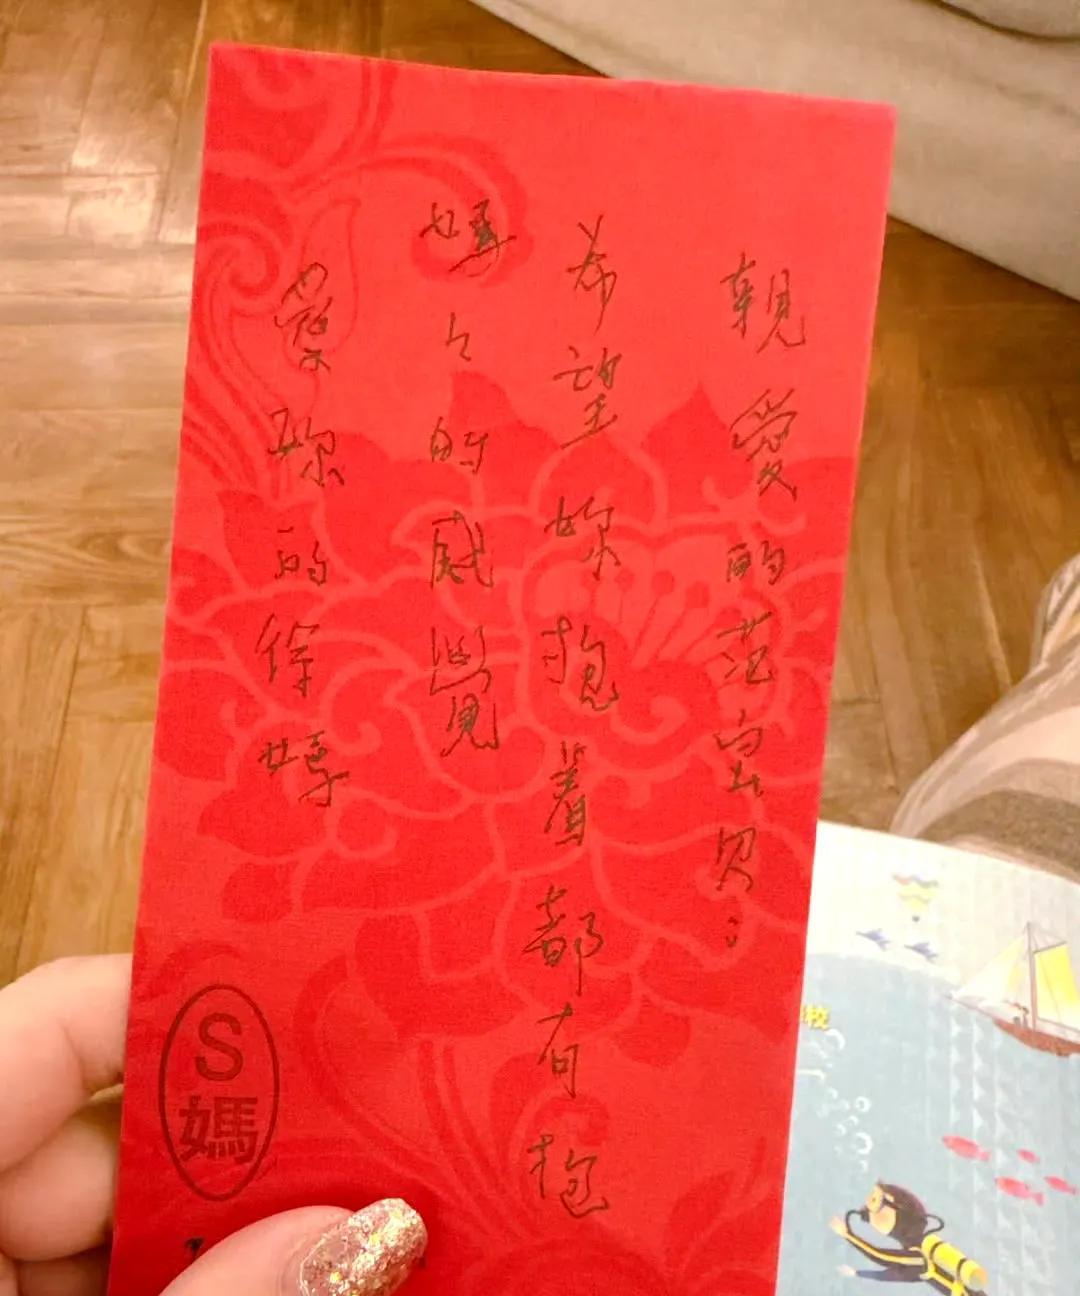 親愛的范寶貝：
希望妳抱着都有抱
媽々的感覺
愛妳的徐媽
S媽
校